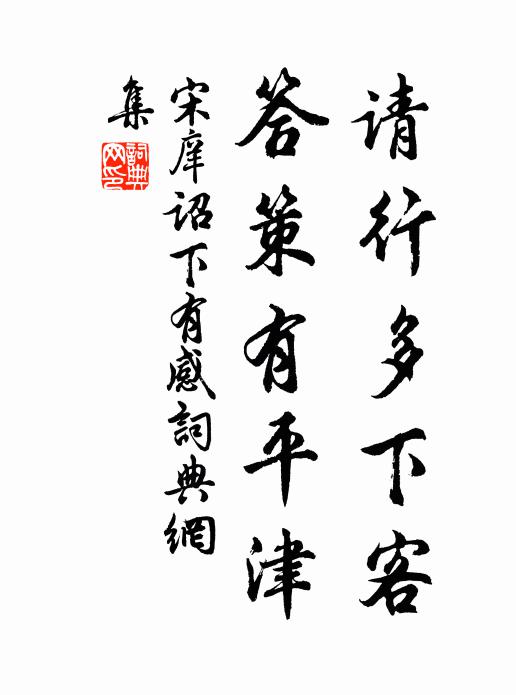 请行多下客
答策有平津
宋庠诏下有感詞典網
集
詞典网印